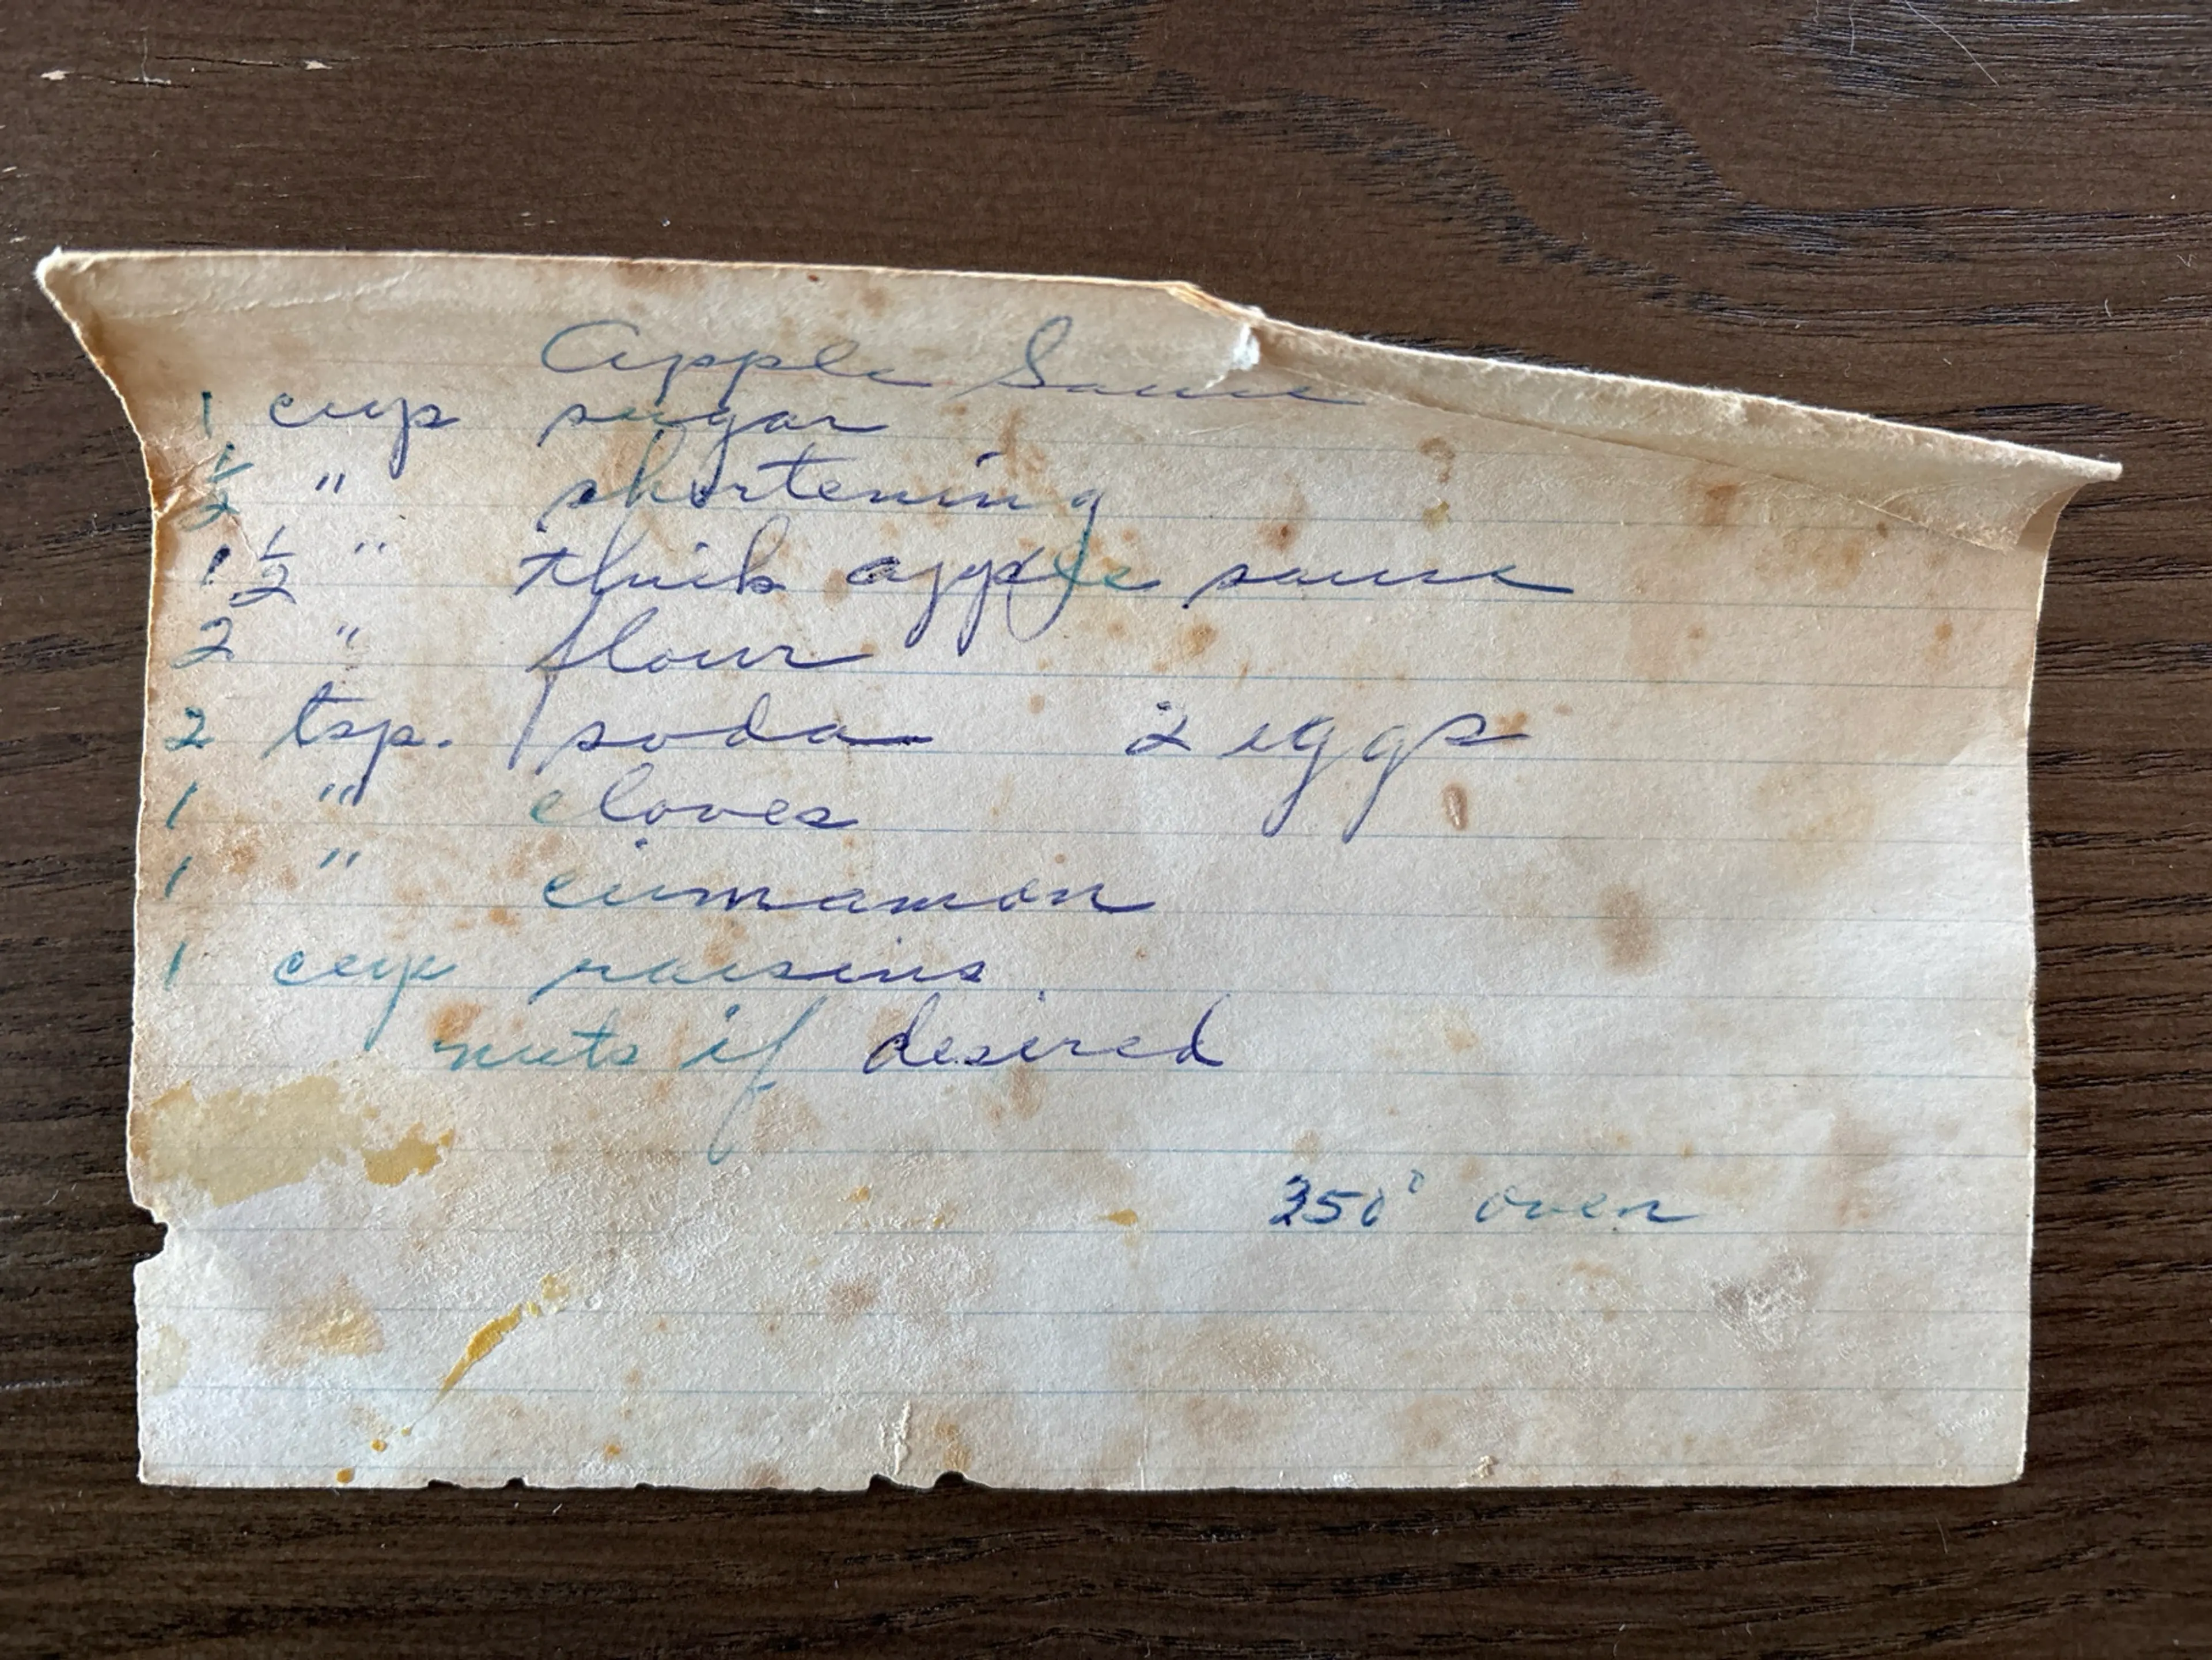 Apple Sauce
1 cup sugar
1/2 " shortening
1 1/2 " thick apple sauce
2 " flour
2 tsp. soda 2 eggs
1 " cloves
1 " cinnamon
1 cup raisins
nuts if desired
350° oven